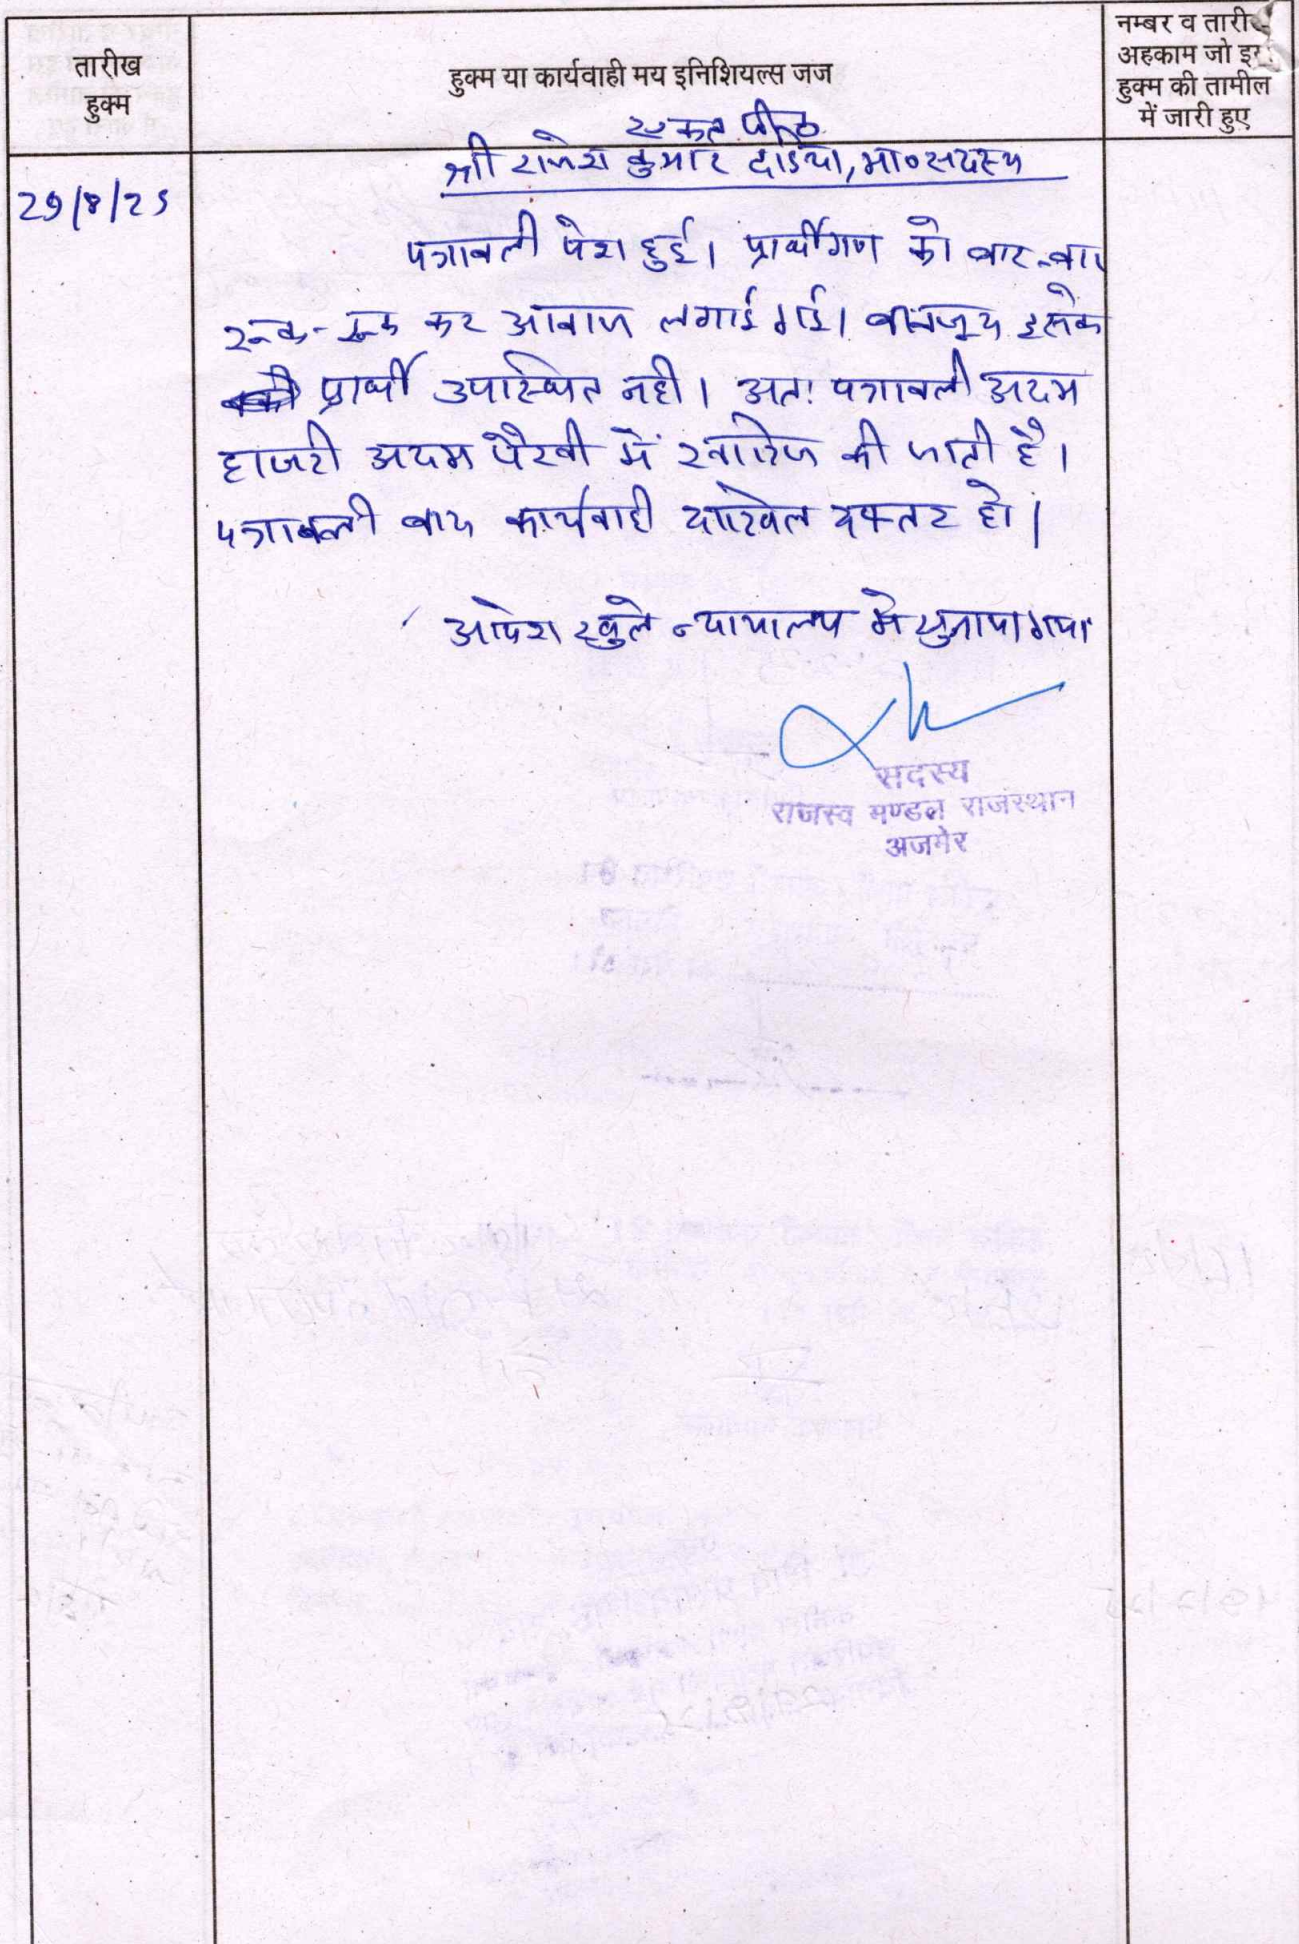 तारीख
हुक्म
हुक्म या कार्यवाही मय इनिशियल्स जज
नम्बर व तारीख
अहकाम जो इस
हुक्म की तामील
में जारी हुए
एकल पीठ
श्री राजेश कुमार दड़िया, मा०सदस्य
29/8/25
पत्रावली पेश हुई। प्रार्थीगण को बार-बार
रूक-रूक कर आवाज लगाई गई। बावजूद इसके
प्रार्थी उपस्थित नही। अतः पत्रावली अदम
हाजरी अदम पैरवी में खारिज की जाती है।
पत्रावली बाद कार्यवाही दाखिल दफ्तर हो।
आदेश खुले न्यायालय मे सुनाया गया
सदस्य
राजस्व मण्डल राजस्थान
अजमेर